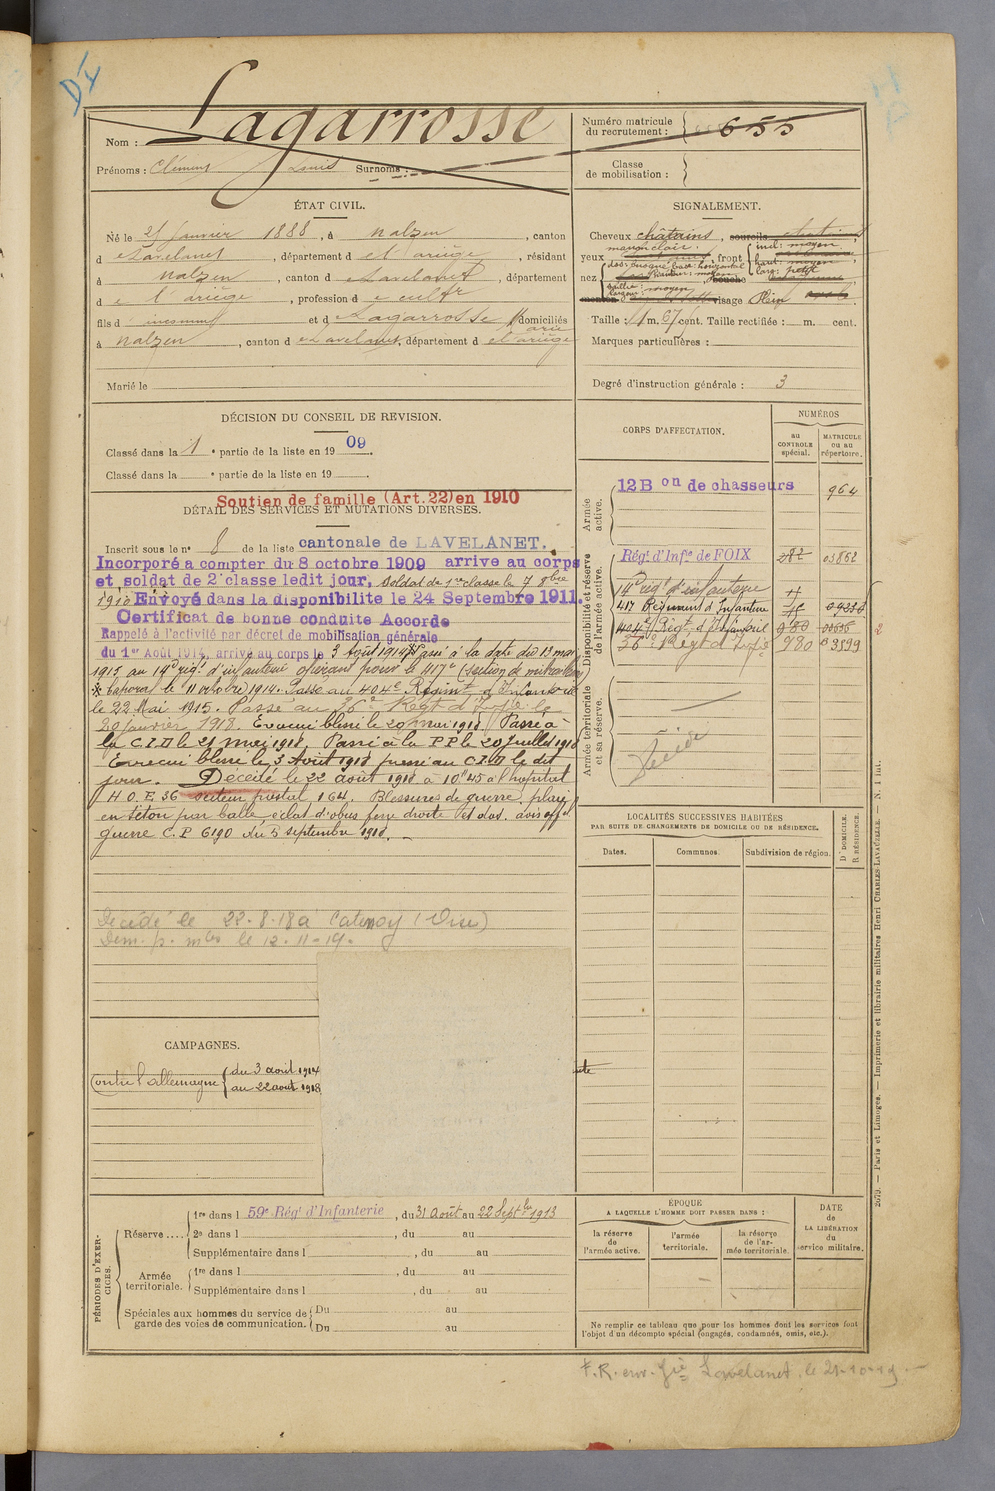 Nom : Lagarrosse
Prénoms : Clément Louis Surnoms :
Numéro matricule du recrutement : 655
Classe de mobilisation :
ÉTAT CIVIL.
Né le 25 Janvier 1888, à Nalzen, canton
d e Lavelanet, département d e l'ariège, résidant
à Nalzen, canton d e Lavelanet, département
d e l'ariège, profession d e cultr
fils d inconnu et d e Lagarrosse Marie domiciliés
à Nalzen, canton d e Lavelanet, département d e l'ariège
Marié le
SIGNALEMENT.
Cheveux châtains, sourcils châtains
yeux marron clair. front incl: moyen haut: moyen larg: petit
nez dos: busqué base: horizontal hauteur: moyen saillie: moyen largeur: moyen bouche
menton visage Plein ovale
Taille : 1 m. 67 cent. Taille rectifiée : m. cent.
Marques particulières :
Degré d'instruction générale : 3
DÉCISION DU CONSEIL DE REVISION.
Classé dans la 1 e partie de la liste en 1909.
Classé dans la e partie de la liste en 19 .
Soutien de famille (Art. 22) en 1910
DÉTAIL DES SERVICES ET MUTATIONS DIVERSES.
Inscrit sous le n° 8 de la liste cantonale de LAVELANET.
Incorporé a compter du 8 octobre 1909 arrive au corps
et soldat de 2e classe ledit jour. Soldat de 1re classe le 7 8bre
1910 Envoyé dans la disponibilite le 24 Septembre 1911.
Certificat de bonne conduite Accorde
Rappelé à l'activité par décret de mobilisation générale
du 1er Août 1914, arrivé au corps le 3 Août 1914 Passé à la date du 13 mai
1915 au 14e rég. d'infanterie opérant pour le 417e (section de mitrailleuses)
* Caporal le 11 octobre 1914. Passé au 404e Régimt d'Infanterie
le 22 Mai 1915. Passé au 36e Régt d'Infie le
20 janvier 1918. Evacué blessé le 20 mai 1918 Passé à
la C.I.D le 21 mai 1918. Passé à la P P le 20 Juillet 1918
Evacué blessé le 3 Août 1918 passé au C.I.D le dit
jour. Décédé le 22 août 1918 à 10h45 à l'hopital
H.O.E 36 secteur postal 164. Blessures de guerre, plaie
en téton par balle, éclat d'obus fesse droite et dos. avis offel
guerre C.P 6190 du 5 septembre 1918.
Décédé le 22.8.18 à Catenoy (Oise)
Dem. p. mlle le 12.11-19.
CAMPAGNES.
Contre l'allemagne du 3 août 1914 au 22 août 1918
CORPS D'AFFECTATION.
NUMÉROS
au CONTROLE spécial.
MATRICULE ou au répertoire.
Armée active.
12 Bon de chasseurs 964
Disponibilité et réserve de l'armée active.
Régt d'Infie de FOIX 282 03862
14e rég. d'infanterie
417 Régiment d'Infanterie
404e Régt d'Infanterie 980
36e Régt d'Infie 980 03899
Armée territoriale et sa réserve.
Décédé
LOCALITÉS SUCCESSIVES HABITÉES
PAR SUITE DE CHANGEMENTS DE DOMICILE OU DE RÉSIDENCE.
Dates. Communes. Subdivision de région. D. DOMICILE. R. RÉSIDENCE.
PÉRIODES D'EXERCICES.
Réserve.... 1re dans l 59e Régt d'Infanterie, du 31 Août au 22 Septbre 1913
2e dans l , du au
Supplémentaire dans l , du au
Armée territoriale. 1re dans l , du au
Supplémentaire dans l , du au
Spéciales aux hommes du service de garde des voies de communication. Du au
Du au
ÉPOQUE
A LAQUELLE L'HOMME DOIT PASSER DANS :
la réserve de l'armée active.
l'armée territoriale.
la réserve de l'armée territoriale.
DATE de LA LIBÉRATION du service militaire.
Ne remplir ce tableau que pour les hommes dont les services font
l'objet d'un décompte spécial (engagés, condamnés, omis, etc.).
F.R. env. Gie Lavelanet, le 21-10-19.
2679. — Paris et Limoges. — Imprimerie et librairie militaires Henri CHARLES-LAVAUZELLE. — N. 1 Int.